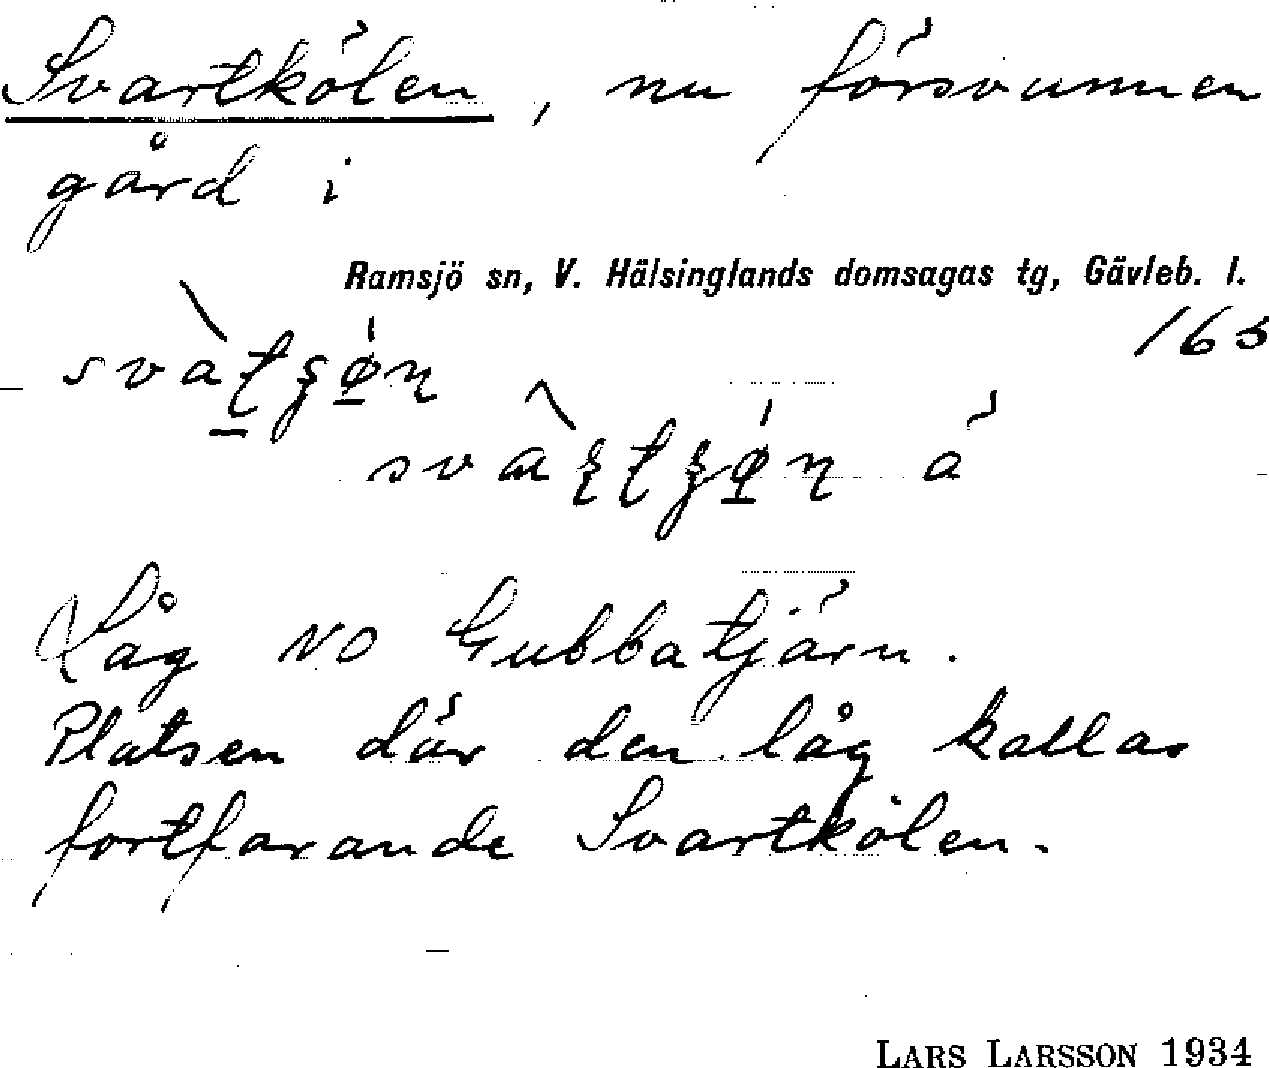 Svartkölen, nu försvunnen
gård i
Ramsjö sn, V. Hälsinglands domsagas tg, Gävleb. l.
Låg NO Gubbatjärn.
Platsen där den låg kallas
fortfarande Svartkölen.
LARS LARSSON 1934